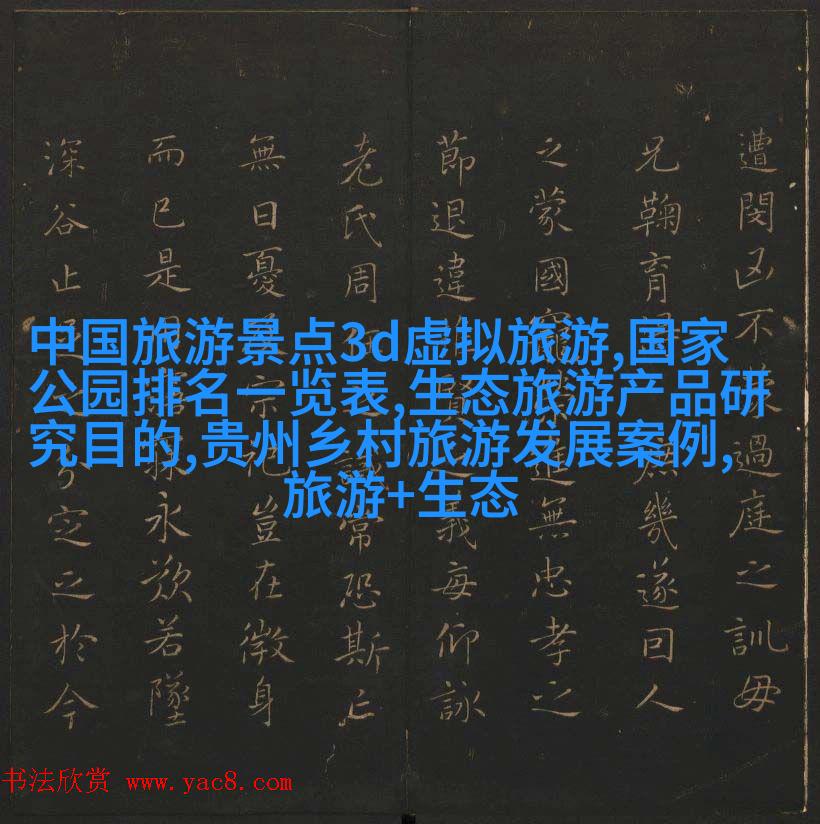 遭閔凶不蒙過庭之訓毋
兄鞠育得庶幾遂回人
之蒙國寵榮進無忠孝之
節退違推賢之義每仰詠
老氏周任之誡常恐斯亡
無日憂及宗祀豈在微身
而已是用寤寐永歎若墜
深谷止足之分定之於今
中国旅游景点3d虚拟旅游,国家
公园排名一览表,生态旅游产品研
究目的,贵州乡村旅游发展案例,
旅游+生态
书法欣赏 www.yac8.com